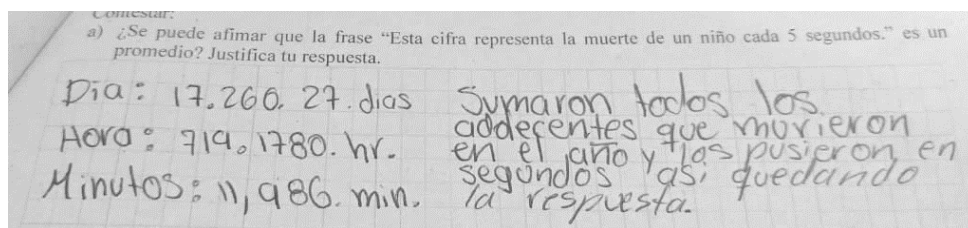 Contestar:
a) ¿Se puede afimar que la frase “Esta cifra representa la muerte de un niño cada 5 segundos.” es un
promedio? Justifica tu respuesta.
Dia: 17.260. 27. dias
Hora: 719.1780. hr.
Minutos: 11,986. min.
Sumaron todos los
addecentes que murieron
en el año y las pusieron en
segundos asi quedando
la respuesta.